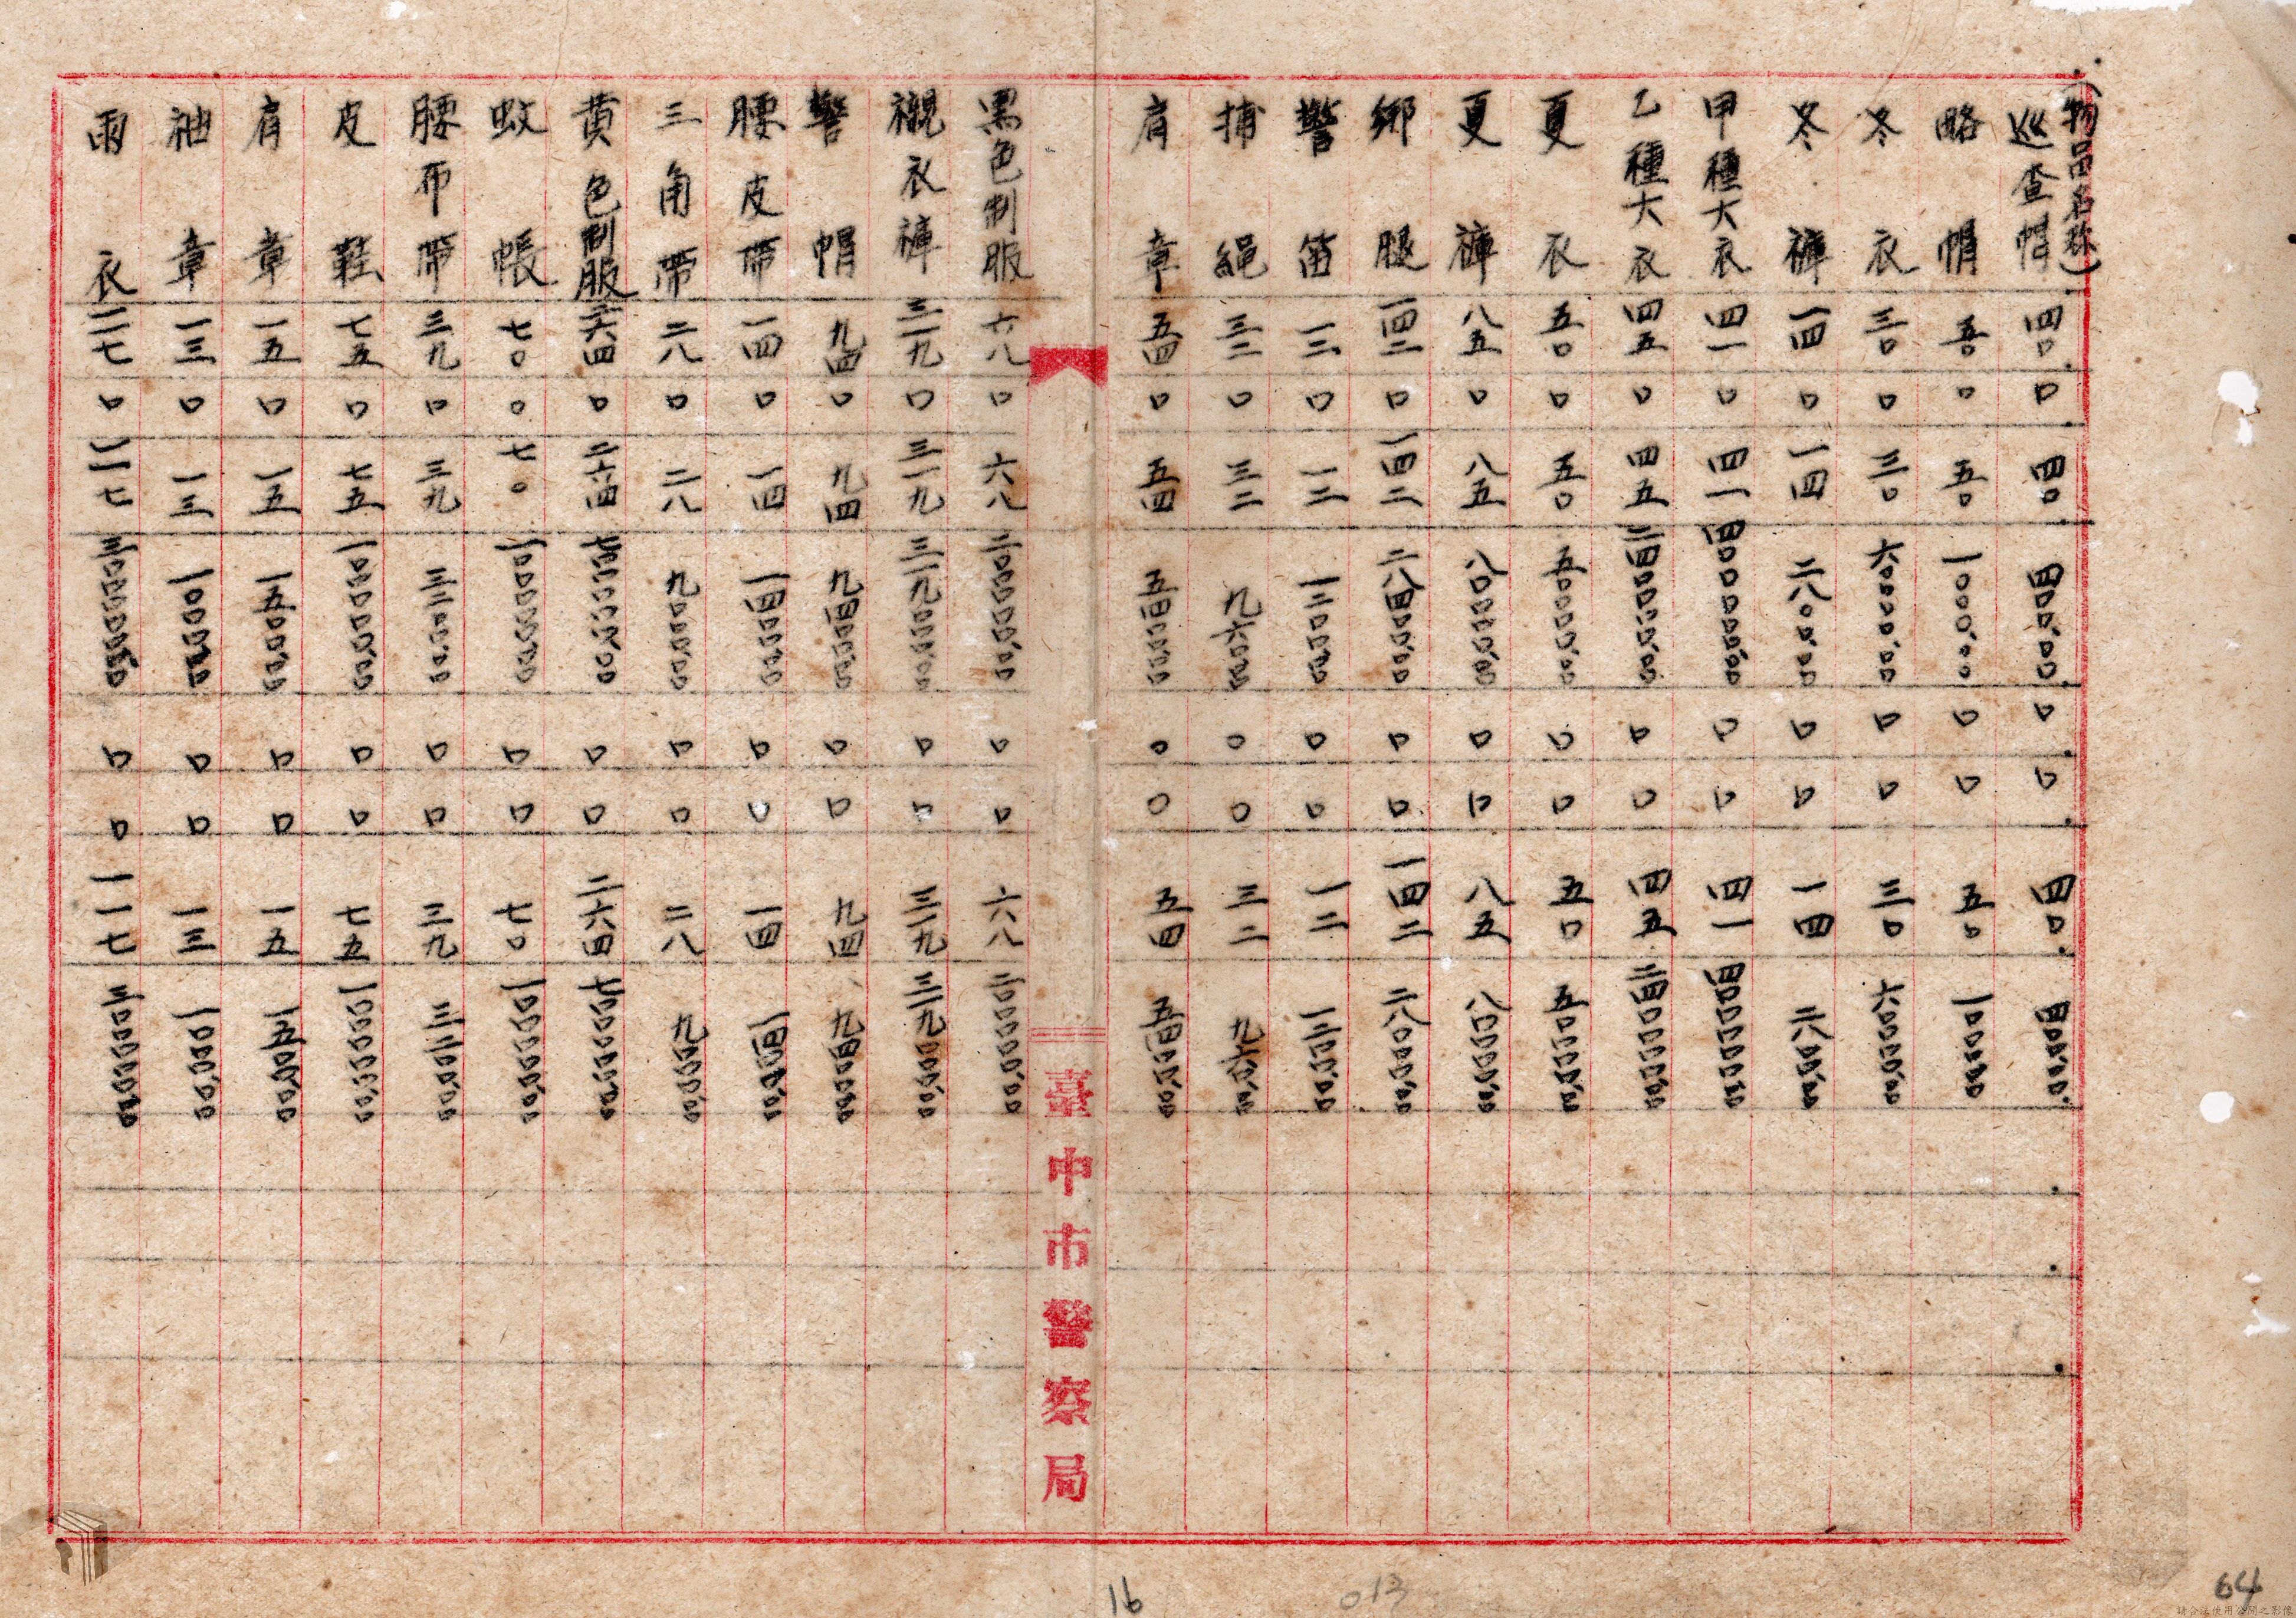 (物品名称)
巡查帽 四〇 〇 四〇 四〇〇〇.〇〇 〇 〇 四〇 四〇〇〇.〇〇
略帽 五〇 〇 五〇 一〇〇〇.〇〇 〇 〇 五〇 一〇〇〇.〇〇
冬衣 三〇 〇 三〇 六〇〇〇〇.〇〇 〇 〇 三〇 六〇〇〇〇.〇〇
冬褲 一四 〇 一四 二八〇〇.〇〇 〇 〇 一四 二八〇〇.〇〇
甲種大衣 四一 〇 四一 四〇〇〇〇〇.〇〇 〇 〇 四一 四〇〇〇〇〇.〇〇
乙種大衣 四五 〇 四五 二四〇〇〇〇.〇〇 〇 〇 四五 二四〇〇〇〇.〇〇
夏衣 五〇 〇 五〇 五〇〇〇〇.〇〇 〇 〇 五〇 五〇〇〇〇.〇〇
夏褲 八五 〇 八五 八〇〇〇〇.〇〇 〇 〇 八五 八〇〇〇〇.〇〇
綁腿 一四二 〇 一四二 二八四〇〇.〇〇 〇 〇 一四二 二八〇〇〇.〇〇
警笛 一二 〇 一二 一二〇〇.〇〇 〇 〇 一二 一二〇〇.〇〇
捕繩 三二 〇 三二 九六〇.〇〇 〇 〇 三二 九六〇.〇〇
肩章 五四 〇 五四 五四〇〇.〇〇 〇 〇 五四 五四〇〇.〇〇
臺中市警察局
黑色制服 六八 〇 六八 二〇〇〇〇〇.〇〇 〇 〇 六八 二〇〇〇〇〇.〇〇
襯衣褲 三一九 〇 三一九 三一九〇〇〇.〇〇 〇 〇 三一九 三一九〇〇〇.〇〇
警帽 九四 〇 九四 九四〇〇.〇〇 〇 〇 九四 九四〇〇.〇〇
腰皮帶 一四 〇 一四 一四〇〇.〇〇 〇 〇 一四 一四〇〇.〇〇
三角帶 二八 〇 二八 九〇〇〇.〇〇 〇 〇 二八 九〇〇〇.〇〇
黄色制服 二六四 〇 二六四 七〇〇〇〇〇.〇〇 〇 〇 二六四 七〇〇〇〇〇.〇〇
蚊帳 七〇 〇 七〇 一〇〇〇〇〇.〇〇 〇 〇 七〇 一〇〇〇〇〇.〇〇
腰布帶 三九 〇 三九 三二〇〇.〇〇 〇 〇 三九 三二〇〇.〇〇
皮鞋 七五 〇 七五 一〇〇〇〇〇.〇〇 〇 〇 七五 一〇〇〇〇〇.〇〇
肩章 一五 〇 一五 一五〇〇.〇〇 〇 〇 一五 一五〇〇.〇〇
袖章 一三 〇 一三 一〇〇〇.〇〇 〇 〇 一三 一〇〇〇.〇〇
雨衣 一一七 〇 一一七 三〇〇〇〇〇.〇〇 〇 〇 一一七 三〇〇〇〇〇.〇〇
16
013
64
請合法使用公開之影像